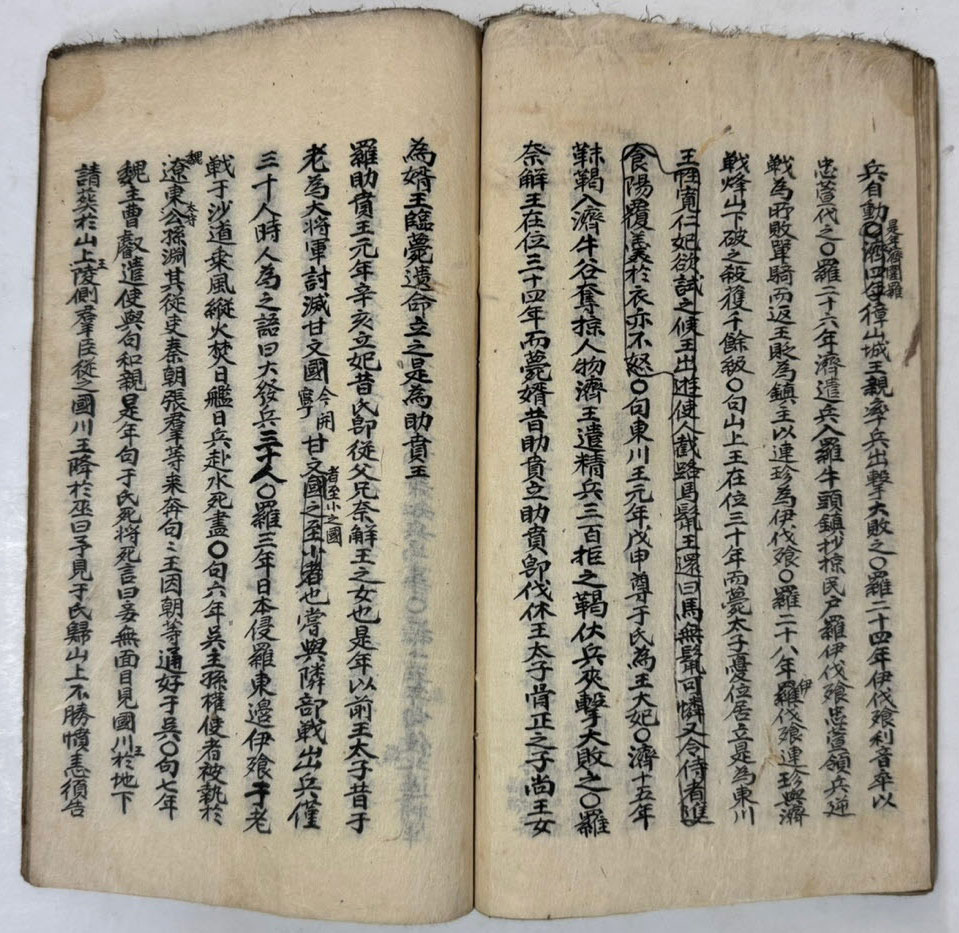 兵自動○濟四年獐山城王親率兵出擊大敗之○羅二十四年伊伐飡利音卒以
是年濟圍羅
忠萱代之○羅二十六年濟遣兵入羅牛頭鎮抄掠民戶羅伊伐飡忠萱領兵逆
戦為所敗單騎而返王貶為鎮主以連珍為伊伐飡○羅二十八年羅伊伐飡連珍與濟
戦烽山下破之殺獲千餘級○句山上王在位三十年而薨太子憂位居立是為東川
王性寬仁妃欲試之候王出遊使人截路馬鬣王還曰馬無鬣可憐又令侍者進
食陽覆羹於衣亦不怒○句東川王元年戊申尊于氏為王大妃○濟十五年
靺鞨入濟牛谷奪掠人物濟王遣精兵三百拒之鞨伏兵夾擊大敗之○羅
奈解王在位三十四年而薨婿昔助賁立助賁即伐休王太子骨正之子尚王女
為婿王臨薨遺命立之是為助賁王
羅助賁王元年辛亥立妃昔氏即従父兄奈解王之女也是年以前王太子昔于
老為大将軍討滅甘文國今開寧甘文國之至小者也嘗與隣部戦出兵僅
者至小之國
三十人時人為之語曰大發兵三十人○羅三年日本侵羅東邊伊飡于老
戦于沙道乗風縦火焚日艦日兵赴水死盡○句六年吳主孫權使者被執於
魏遼東太守公孫淵其従吏秦朝張羣等来奔句々王因朝等通好于吳○句七年
魏主曹叡遣使與句和親是年句于氏死将死言曰妾無面目見國川王於地下
請葬於山上王陵側羣臣従之國川王降於巫曰予見于氏歸山上不勝憤恚須告